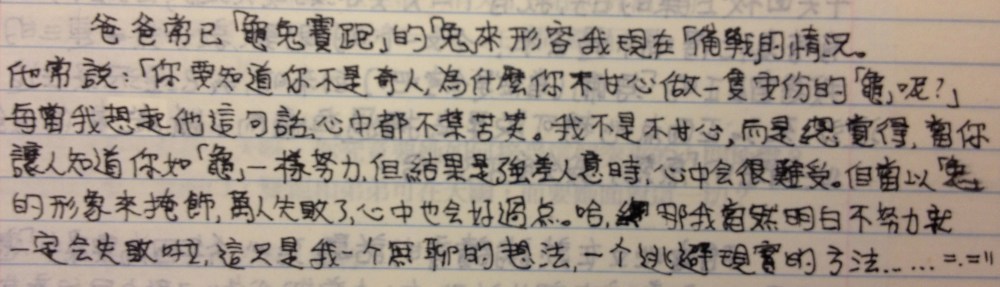 爸爸常已「龜兔賽跑」的「兔」來形容我現在「備戰」的情況。
他常說：「你要知道你不是奇人，為什麼你不甘心做一隻安份的「龜」呢？」
每當我想起他這句話，心中都不禁苦笑。我不是不甘心，而是總覺得，當你
讓人知道你如「龜」一樣努力，但結果是強差人意時，心中会很難受。但當以「兔」
的形象來掩飾，萬一失敗了，心中也会好過点。哈，那我當然明白不努力就
一定会失敗啦，這只是我一个無聊的想法，一个逃避現實的方法…… =.="